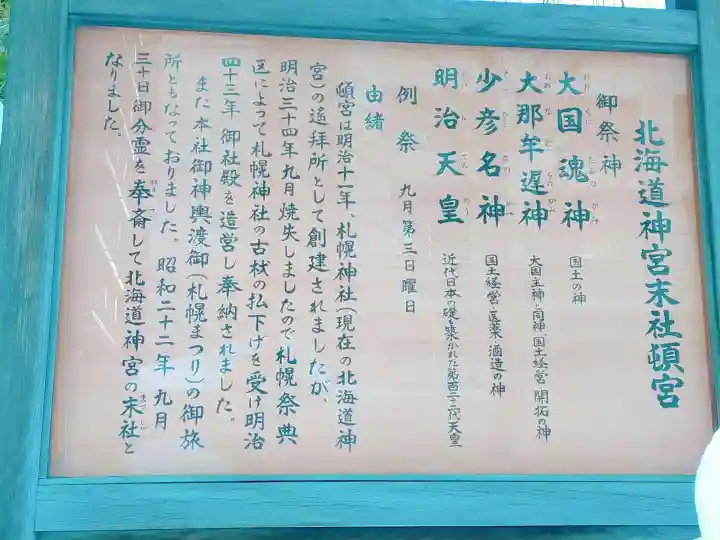 北海道神宮末社頓宮
御祭神
大国魂神 国土の神
大那牟遅神 大国主神と同神、国土経営・開拓の神
少彦名神 国土経営・医薬・酒造の神
明治天皇 近代日本の礎を築かれた第百二十二代天皇
例祭 九月第三日曜日
由緒
頓宮は明治十一年、札幌神社(現在の北海道神
宮)の遙拝所として創建されましたが、
明治三十四年九月焼失しましたので札幌祭典
区によって札幌神社の古材の払下げを受け明治
四十三年 御社殿を造営し奉納されました。
また本社御神輿渡御(札幌まつり)の御旅
所ともなっておりました。昭和二十二年 九月
三十日御分霊を奉斎して北海道神宮の末社と
なりました。